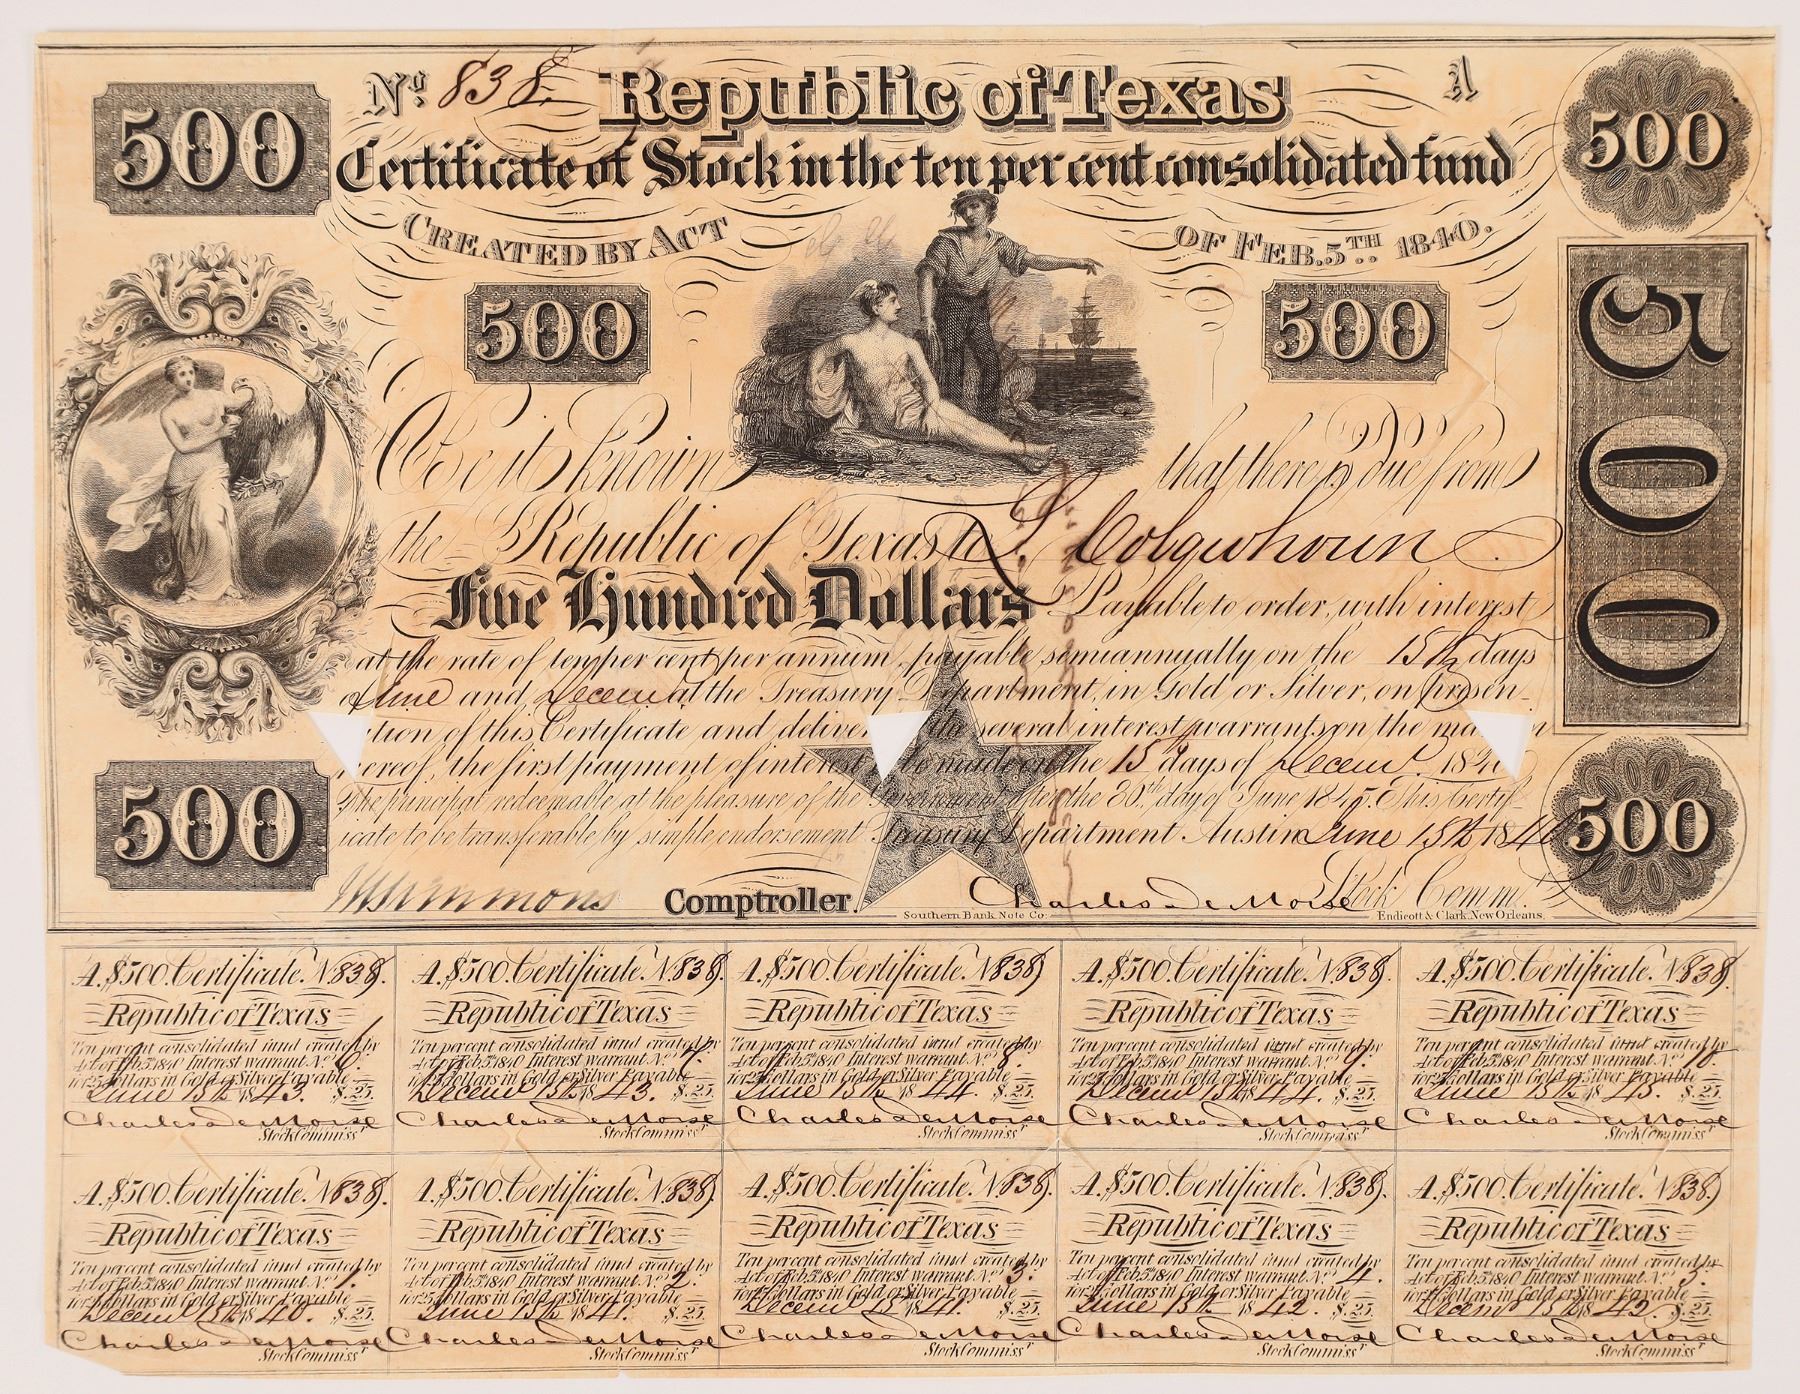 500
No. 838. Republic of Texas A
500
Certificate of Stock in the ten per cent consolidated fund
Created by Act of Feb. 5th. 1840.
500
500
500
Be it known that there is due from
the Republic of Texas to L Colquhoun
Five Hundred Dollars Payable to order, with interest
at the rate of ten per cent per annum, payable semiannually on the 15th days
of June and Decem at the Treasury Department, in Gold or Silver, on presen-
tion of this Certificate and deliver the several interest warrants on the ma n
hereof, the first payment of interest to be made on the 15th days of Decem 1840
The principal redeemable at the pleasure of the Government after the 30th day of June 1845. This Certif-
icate to be transferable by simple endorsement Treasury Department Austin June 15th 1840
500
500
Comptroller. Charles DeMorse Stock Commr.
Southern Bank Note Co. Endicott & Clark, New Orleans.
A. $500. Certificate. N 838.
Republic of Texas
Ten per cent consolidated fund created by
Act of Feb. 5th 1840 Interest warrant No. 6.
for 25 dollars in Gold or Silver Payable
June 15th 1843. $.25.
Charles DeMorse
Stock Commissr
A. $500. Certificate. N 838.
Republic of Texas
Ten per cent consolidated fund created by
Act of Feb. 5th 1840 Interest warrant No. 7.
for 25 dollars in Gold or Silver Payable
Decem 15th 1843. $.25.
Charles DeMorse
Stock Commissr
A. $500. Certificate. N 838
Republic of Texas
Ten per cent consolidated fund created by
Act of Feb. 5th 1840 Interest warrant No. 8.
for 25 dollars in Gold or Silver Payable
June 15th 1844. $.25.
Charles DeMorse
Stock Commissr
A. $500. Certificate. N 838.
Republic of Texas
Ten per cent consolidated fund created by
Act of Feb. 5th 1840 Interest warrant No. 9.
for 25 dollars in Gold or Silver Payable
Decem 15th 1844. $.25.
Charles DeMorse
Stock Commissr
A. $500. Certificate. N 838.
Republic of Texas
Ten per cent consolidated fund created by
Act of Feb. 5th 1840 Interest warrant No. 10.
for 25 dollars in Gold or Silver Payable
June 15th 1845. $.25.
Charles DeMorse
Stock Commissr
A. $500. Certificate. N 838.
Republic of Texas
Ten per cent consolidated fund created by
Act of Feb. 5th 1840 Interest warrant No. 1.
for 25 dollars in Gold or Silver Payable
Decem 15th 1840. $.25.
Charles DeMorse
Stock Commissr
A. $500. Certificate. N 838.
Republic of Texas
Ten per cent consolidated fund created by
Act of Feb. 5th 1840 Interest warrant No. 2.
for 25 dollars in Gold or Silver Payable
June 15th 1841. $.25.
Charles DeMorse
Stock Commissr
A. $500. Certificate. N 838.
Republic of Texas
Ten per cent consolidated fund created by
Act of Feb. 5th 1840 Interest warrant No. 3.
for 25 dollars in Gold or Silver Payable
Decem 15 1841. $.25.
Charles DeMorse
Stock Commissr
A. $500. Certificate. N 838.
Republic of Texas
Ten per cent consolidated fund created by
Act of Feb. 5th 1840 Interest warrant No. 4.
for 25 dollars in Gold or Silver Payable
June 15th 1842. $.25.
Charles DeMorse
Stock Commissr
A. $500. Certificate. N 838.
Republic of Texas
Ten per cent consolidated fund created by
Act of Feb. 5th 1840 Interest warrant No. 5.
for 25 dollars in Gold or Silver Payable
Decem 15th 1842. $.25.
Charles DeMorse
Stock Commissr